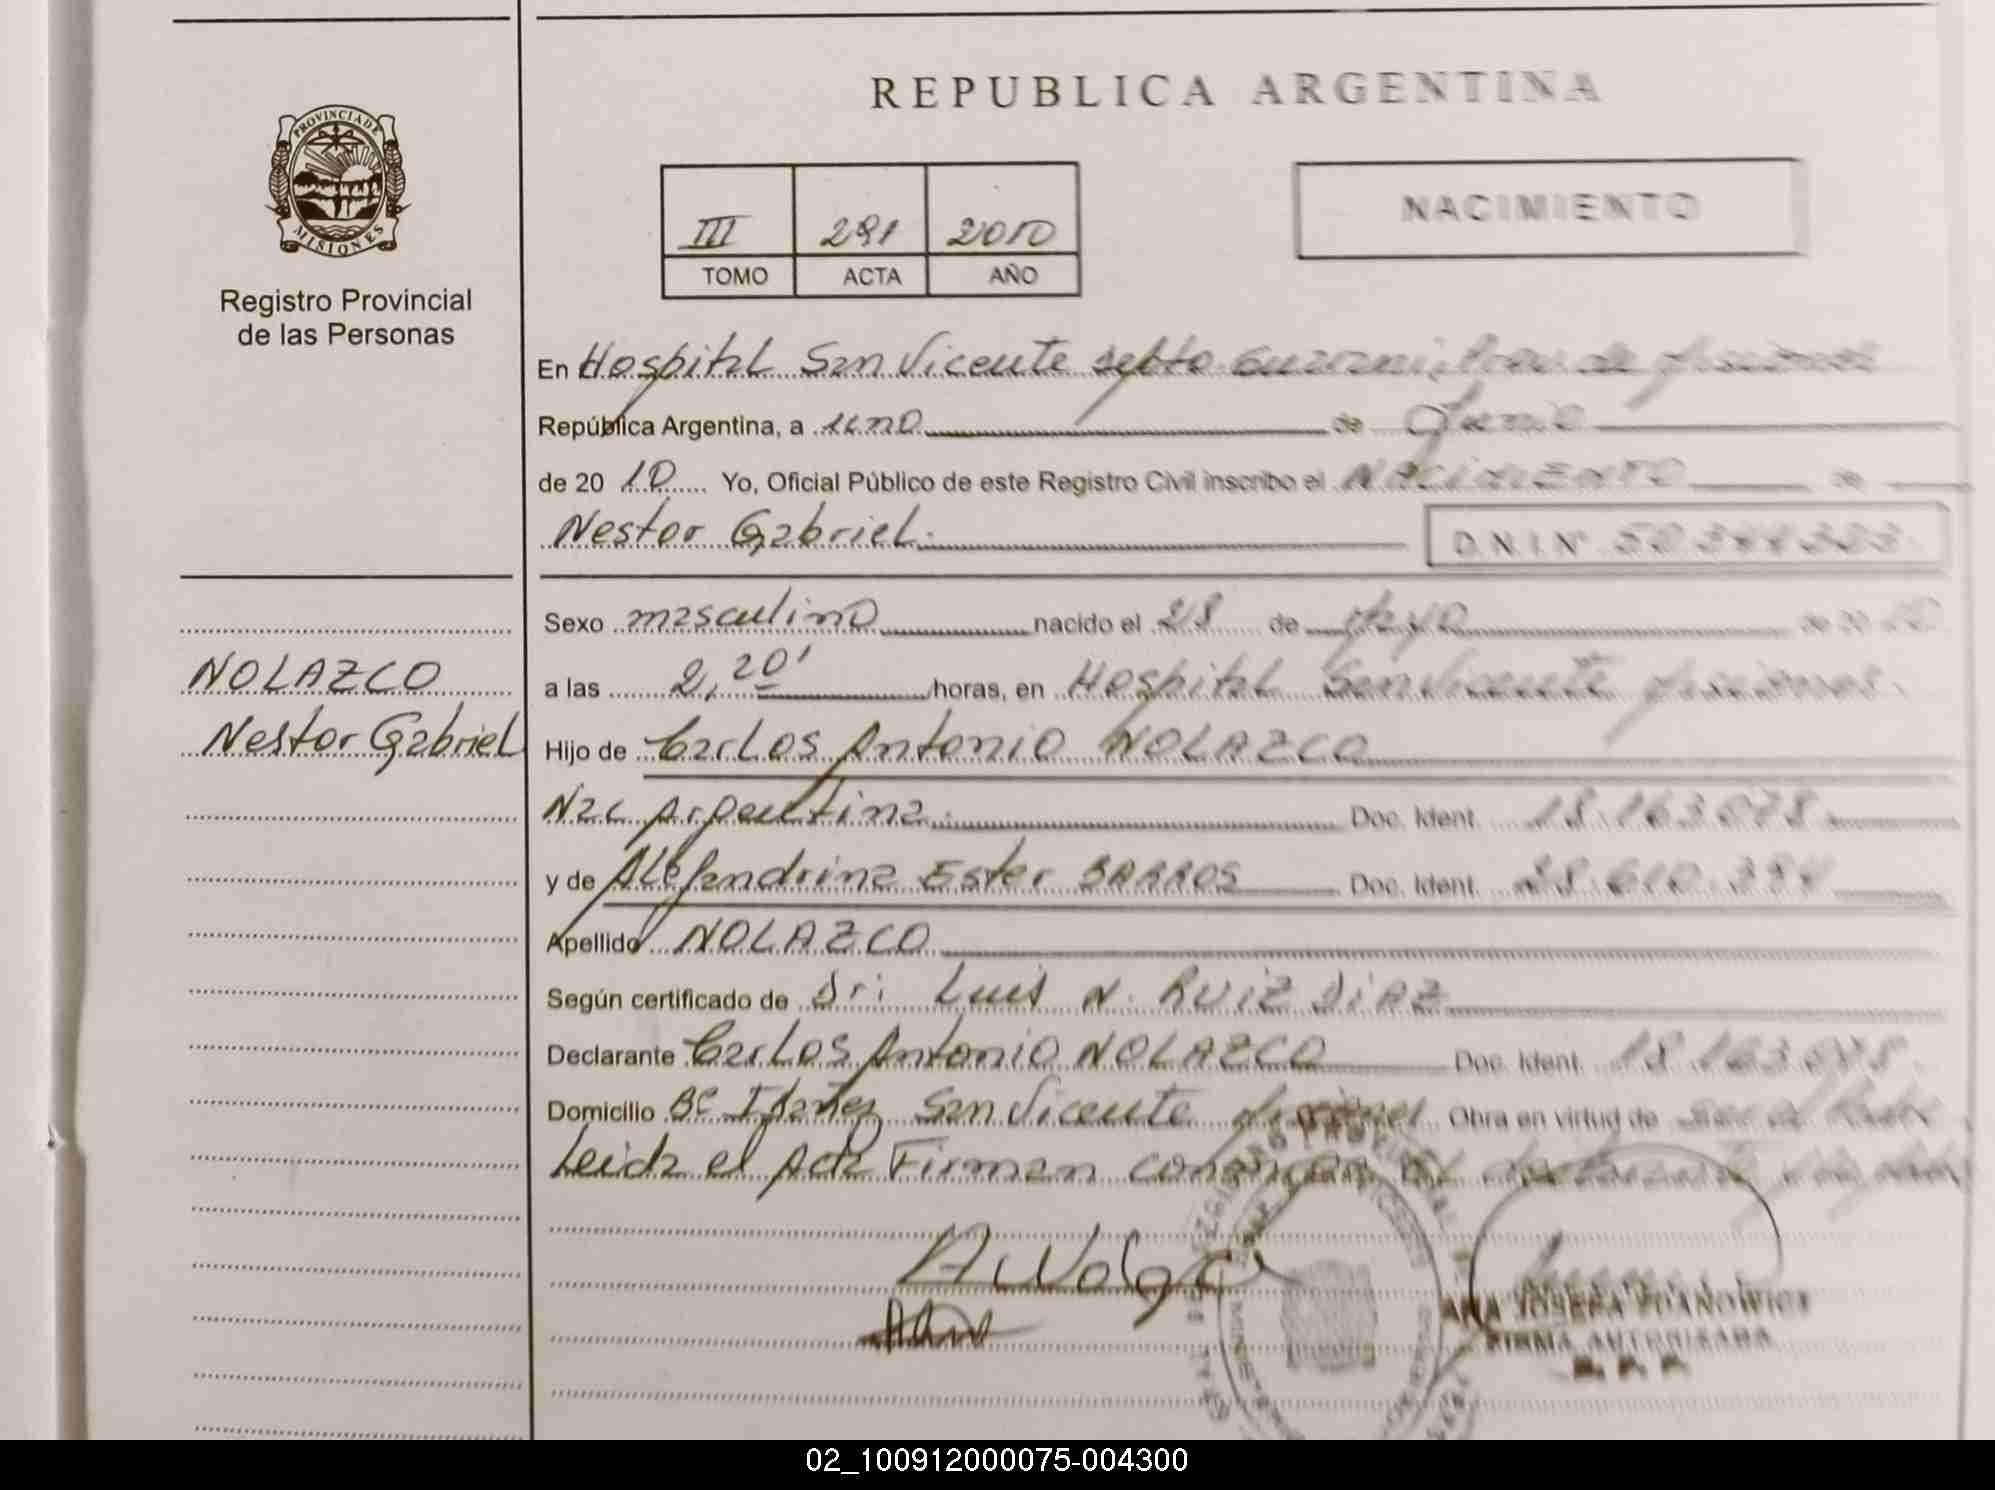 REPUBLICA ARGENTINA
PROVINCIA DE
MISIONES
Registro Provincial
de las Personas
III 291 2010
TOMO ACTA AÑO
NACIMIENTO
En Hospital San Vicente Depto Guarani, Prov. de Misiones
República Argentina, a uno de Junio
de 2010 Yo, Oficial Público de este Registro Civil inscribo el NACIMIENTO de
Nestor Gabriel.
D.N.I Nº
Sexo masculino nacido el 28 de Mayo de 2010
NOLAZCO
Nestor Gabriel
a las 2,20' horas, en Hospital San Vicente Misiones.
Hijo de Carlos Antonio NOLAZCO
Nac Argentina. Doc. Ident. 18.163.078.
y de Alejandrina Ester BARROS Doc. Ident. 28.610.394
Apellido NOLAZCO
Según certificado de Dr: Luis N. RUIZ DIAZ
Declarante Carlos Antonio NOLAZCO Doc. Ident. 18.163.078.
Domicilio Bº San Vicente Misiones Obra en virtud de
Leida el Acta Firman
ANA JOSEFA
FIRMA AUTORIZADA
R. P. P.
02_100912000075-004300